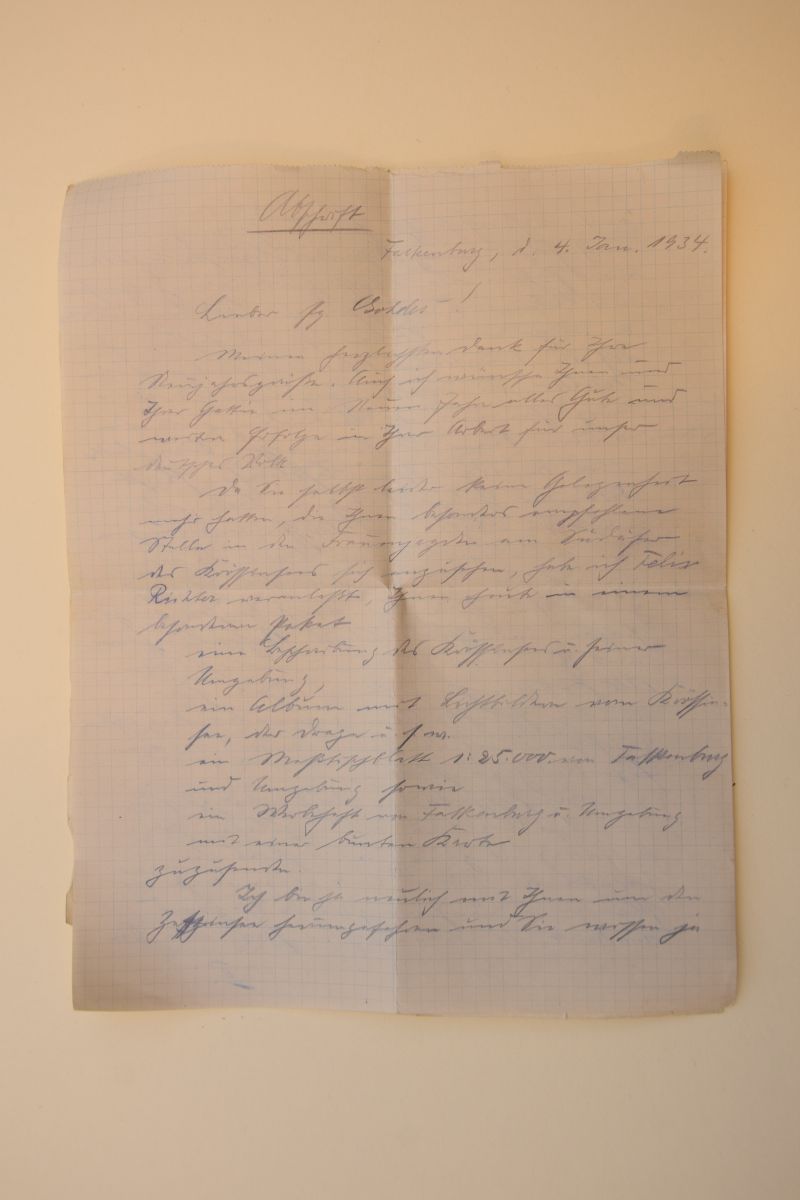 Abschrift
Falkenburg, d. 4. Jan. 1934.
Lieber Pg Gohdes!
Meinen herzlichsten Dank für Ihre
Neujahrsgrüße. Auch ich wünsche Ihnen und
Ihrer Gattin im Neuen Jahr alles Gute und
weitere Erfolge in Ihrer Arbeit für unser
deutsches Volk.
Da Sie selbst leider keine Gelegenheit
mehr hatten, die Ihnen besonders empfohlene
Stelle in den am Südufer
des Krössinsees sich anzusehen, habe ich Felix
Richter veranlaßt, Ihnen heute in einem
besonderen Paket
eine Beschreibung des Krössinsees u. seiner
Umgebung,
ein Album mit Lichtbildern vom Krössin-
see, der Drage u.s.w.
ein Meßtischblatt 1:25.000. von Falkenburg
und Umgebung sowie
ein Werbeheft von Falkenburg u. Umgebung
mit einer bunten Karte
zuzusenden.
Ich bin ja neulich mit Ihnen um den
herumgefahren und Sie wissen ja